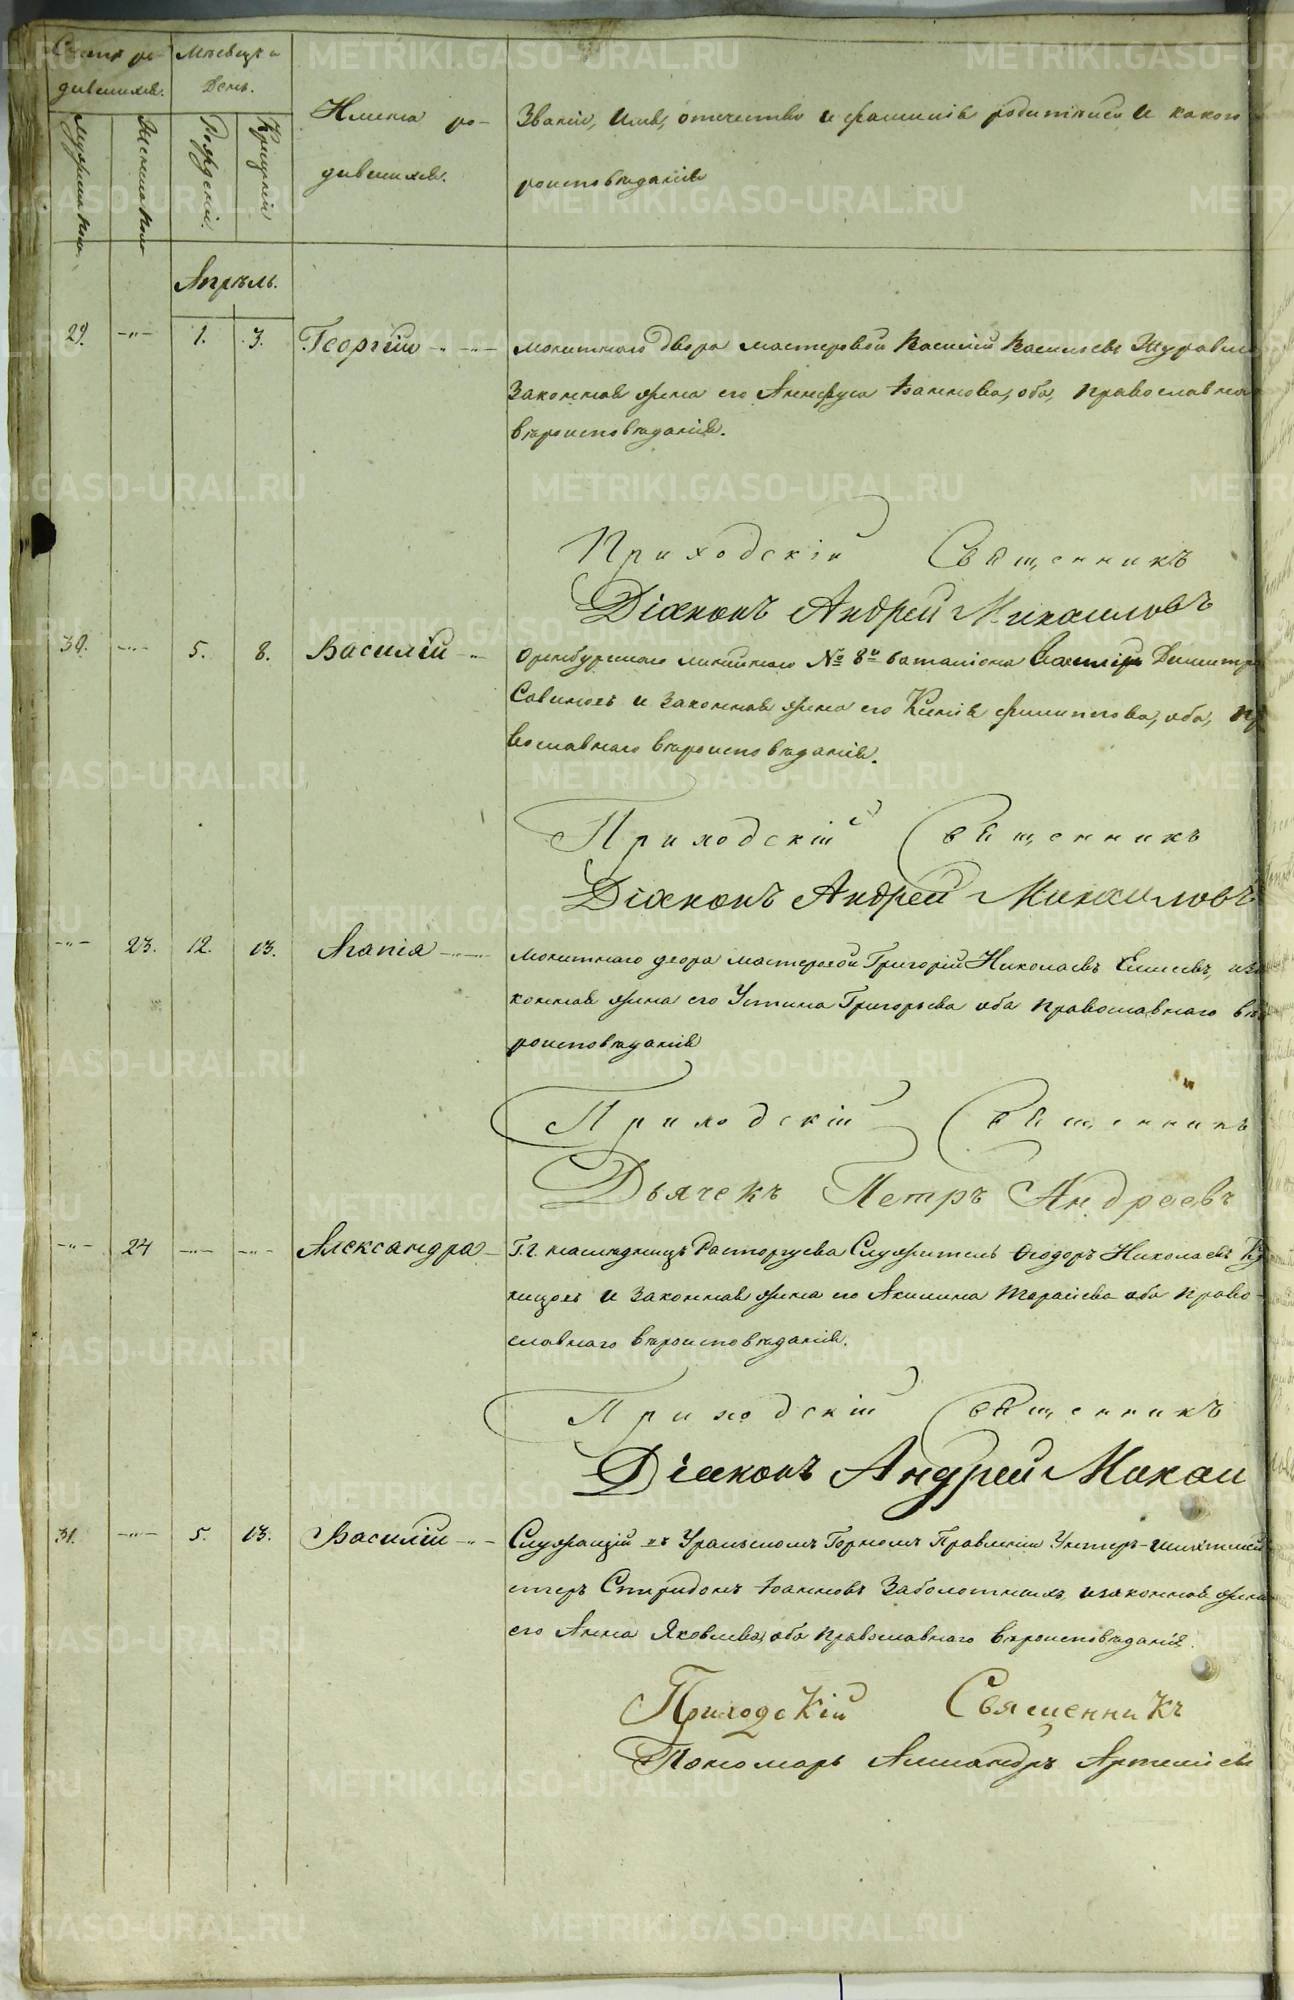 Счетъ ро-
дившихся.
Мѣсяцъ и
День.
Мужеска пола
Женска пола
Рожденія.
Крещенія
Имена ро-
дившихся.
Званіе, имя, отечество и фамилія родителей и какого
роисповѣданія
Апрѣль.
29. -"- 1. 3. Георгій монетнаго двора мастеровой Василій Васильевъ
Законная жена его Анфуса Іоаннова, оба, православна
вѣроисповѣданія.
Приходскій Священникъ
Діаконъ Андрей Михаиловъ
30. -"- 5. 8. Василій Оренбургскаго линійнаго № 8й баталіона Димитрі
Савиновъ и законная жена его Филиппова, оба, пр
вославнаго вѣроисповѣданія.
Приходскій Священникъ
Діаконъ Андрей Михаиловъ
-"- 23. 12. 13. Агапія монетнаго двора мастеровой Григорій Николаевъ Елисеевъ, иза
конная жена его Устина Григорьева оба православнаго вѣ
роисповѣданія
Приходскій Священникъ
Дьячекъ Петръ Андреевъ
-"- 24 -"- -"- Александра Г.г. наследницъ Расторгуева Служитель Ѳеодоръ Николаевъ
и законная жена его Акилина Тарасиева оба право-
славнаго вѣроисповѣданія.
Приходскій Священникъ
Діаконъ Андрей Михаи
31. -"- 5. 13. Василій Служащій въ Уральскомъ Горномъ Правленіи Унтеръ-шихтмей
стеръ Спиридонъ Іоанновъ Заболотныхъ, изаконная жена
его Анна Яковлева, оба православнаго вѣроисповѣданія.
Приходскій Священникъ
Пономарь Александръ Артемьев
METRIKI.GASO-URAL.RU